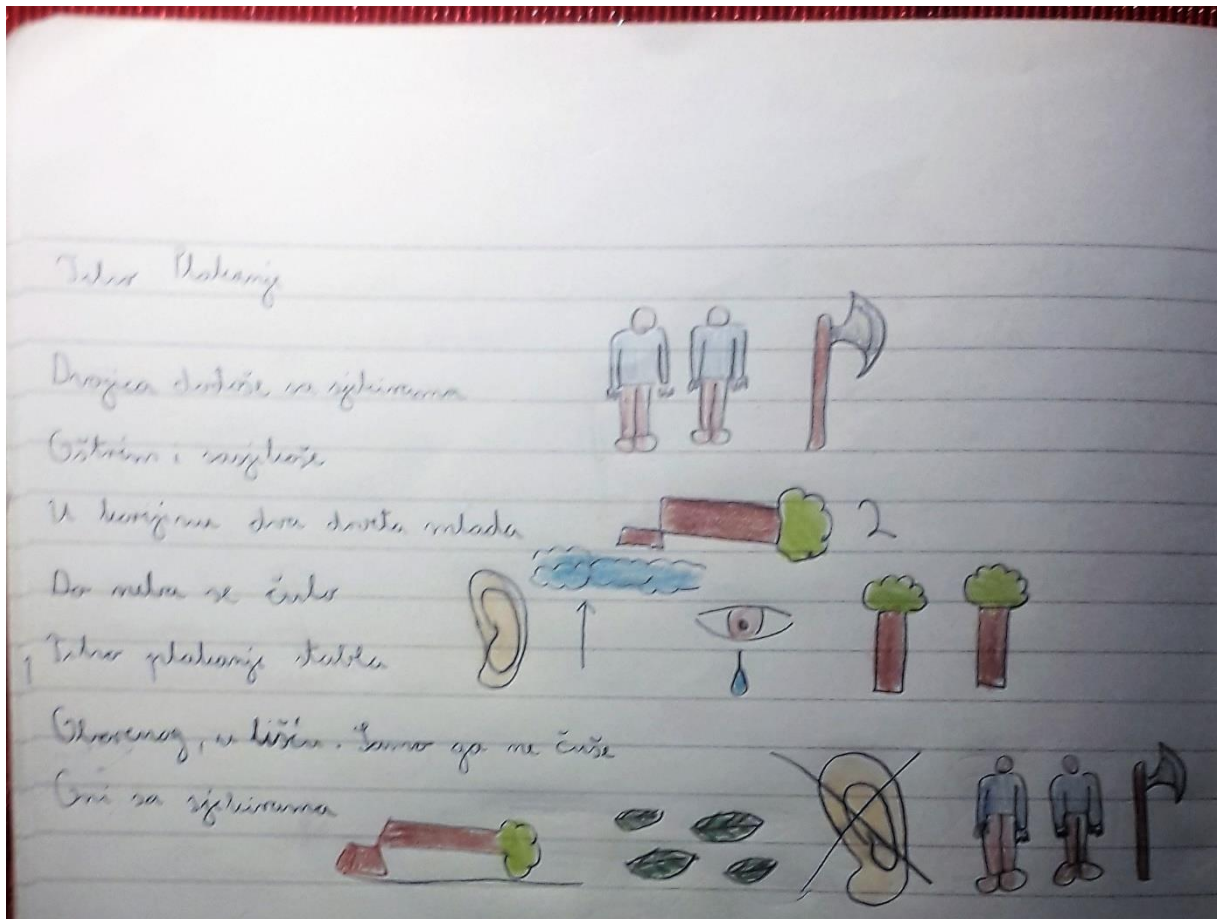 Tiho Plakanje
Dvojica dođoše sa sjekirama
Oštrim i sasjekoše
U korijenu dva drveta mlada
2
Do neba se čulo
Tiho plakanje stabla
Oborenog, u lišću. Samo ga ne čuše
Oni sa sjekirama